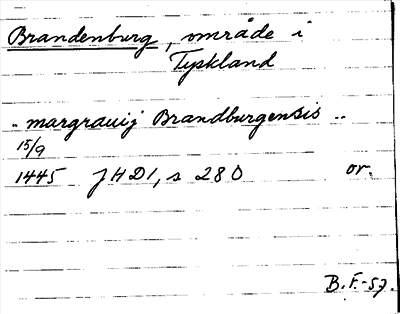 Brandenburg, område i
Tyskland
.. margrauij Brandburgensis ..
15/9
1445 JHD1, s 280 or.
B.F.-57.